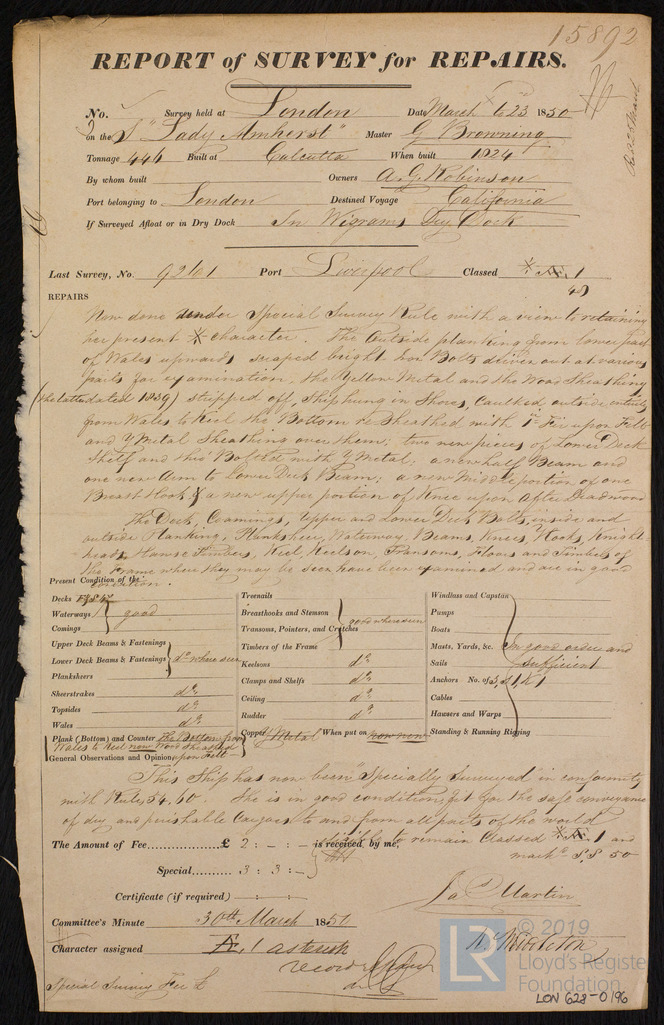 15892
REPORT of SURVEY for REPAIRS.
No. Survey held at London Date March to 23 1850
on the S "Lady Amherst" Master G Browning
Tonnage 446 Built at Calcutta When built 1824
By whom built Owners A. G. Robinson
Port belonging to London Destined Voyage California
If Surveyed Afloat or in Dry Dock In Wigrams Dry Dock
Last Survey, No. 9261 Port Liverpool Classed 1
49
REPAIRS
Now done under Special Survey Rule with a view to retaining
her present character. The Outside planking from lower part
of Wales upwards scraped bright her Bolts driven out at various
parts for examination, the Yellow Metal and the Wood Sheathing
(the latter dated 1839) stripped off, Ship hung in Shores, Caulked outside entirely
from Wales to Keel the Bottom resheathed with 1 in Fir upon Felt
and Y Metal Sheathing over them; two new pieces of Lower Deck
Shelf and this Bolted with Y Metal: a new half Beam and
one new Arm to Lower Deck Beam; a new Middle portion of one
Breast Hook & a new upper portion of Knee upon After Deadwood
The Deck, Coamings, Upper and Lower Deck Bolts, inside and
outside Planking, Planksheer, Waterway, Beams, Knees, Hooks, Knight-
heads, Hawse Timbers, Keel, Keelson, Transoms, Floors and Timbers of
the Frame where they may be seen have been examined and are in good
Condition.
Present Condition of the
Decks
Waterways good
Comings
Upper Deck Beams & Fastenings
Lower Deck Beams & Fastenings do where seen
Planksheers
Sheerstrakes do
Topsides do
Wales do
Plank (Bottom) and Counter The Bottom from
Wales to Keel now Wood Sheathed
upon Felt
Treenails
Breasthooks and Stemson
Transoms, Pointers, and Crutches good where seen
Timbers of the Frame
Keelsons do
Clamps and Shelfs do
Ceiling do
Rudder do
Copper Y Metal When put on now new
Windlass and Capstan
Pumps
Boats
Masts, Yards, &c. In good order and
Sails sufficient
Anchors No. of 3, 1, & 1
Cables
Hawsers and Warps
Standing & Running Rigging
General Observations and Opinion
This Ship has now been "Specially Surveyed" in conformity
with Rules 54, 60. She is in good condition, fit for the safe conveyance
of dry and perishable Cargoes to and from all parts of the world
to remain Classed 1 and
The Amount of Fee £ 2 : - : - is received by me,
markd S.S 50
Special 3 : 3 : -
Certificate (if required)
Jas Martin
Committee's Minute 30th March 1850
Character assigned 1 asterisk
record
Special Survey Fee £
© 2019
LR
Lloyd's Register
Foundation
LON 628-0196